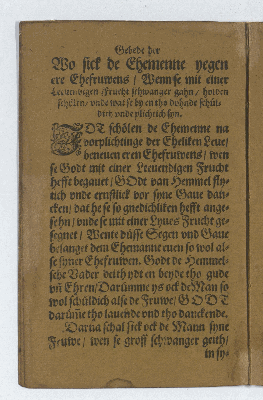 Gebede der
Wo sick de Ehemenne yegen
ere Ehefruwens / Wenn se mit einer
Leuendigen / Frucht schwanger gahn / holden
schölen / vnde wat se by en tho dohnde schül-
dich vnde plichtich syn.
GOT schölen de Ehemenne na
vorplichtinge der Ehliken Leue /
beneuen eren Ehefruwens / wen
se Godt mit einer Leuendigen Frucht
hefft begauet / GOdt van Hemmel fly-
tich vnde ernstlick vor syne Gaue dan-
cken / dat he se so gnedichliken hefft ange-
sehn / vnde se mit einer Lyues Frucht ge-
segnet / Wente düsse Segen vnd Gaue
belanget dem Ehemanne euen so wol al-
se syner Ehefruwen. Godt de Hemmel-
sche Vader deith ydt en beyde tho gude
vñ Ehren / Darümme ys ock de Man so
wol schüldich alse de Fruwe / GODT
darüme tho lauende vnd tho danckende.
Darüm schal sick ock de Mann syne
Fruwe / wen se groff schwanger geith /
in sy-